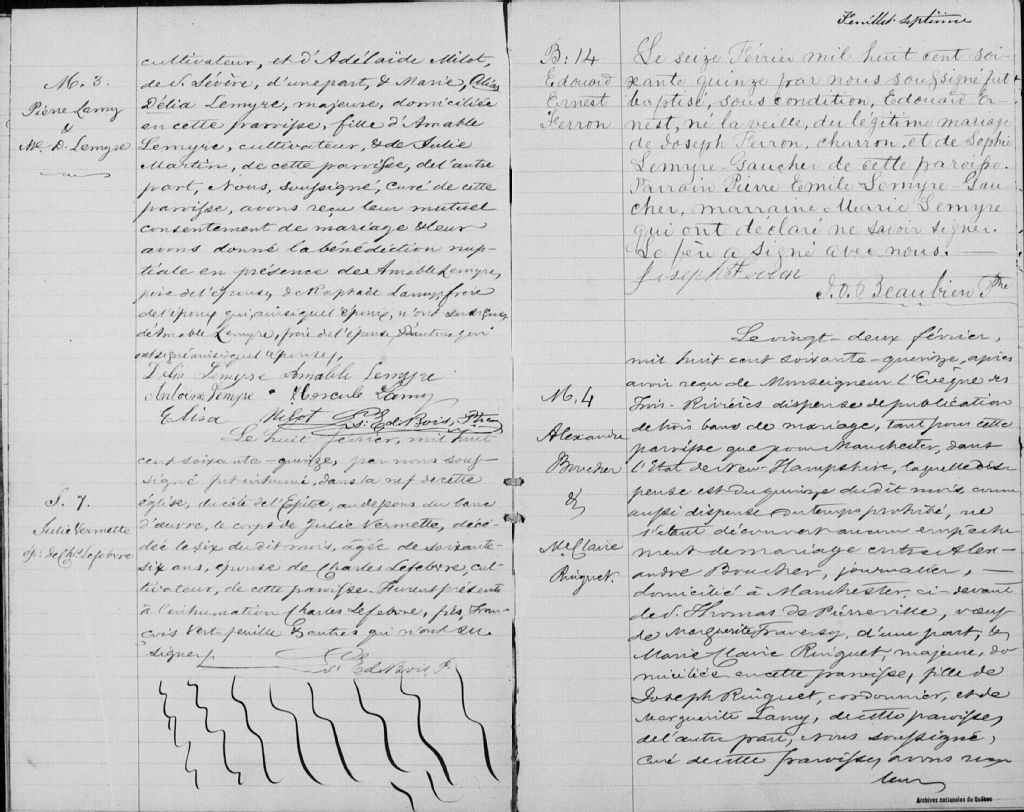 M. 3.
Pierre Lamy
&
Mie D. Lemyre
cultivateur, et d'Adélaïde Milot,
de S. Sévère, d'une part, & Marie, Alias
Délia Lemyre, majeure, domiciliée
en cette paroisse, fille d'Amable
Lemyre, cultivateur, & de Julie
Martin, de cette paroisse, de l'autre
part, Nous, soussigné, curé de cette
paroisse, avons reçu leur mutuel
consentement de mariage & leur
avons donné la bénédiction nup-
tiale en présence de Amable Lemyre,
père de l'épouse, de Raphaël Lamy, frère
de l'époux qui, ainsi que l'époux, n'ont su signer,
d'Amable Lemyre, frère de l'épouse & d'autres, qui
ont signé ainsi que l'épouse,
Délia Lemyre Amable Lemyre
Antoine Lemyre Hercule Lamy
Elisa Milot Ptre
S. 7.
Julie Vermette
ép: de Chs Lefebvre
Le huit février, mil huit
cent soixante-quinze, par nous sous-
signé fut inhumé, dans la nef de cette
église, du côté de l'Epitre, au dessous du banc
d'œuvre, le corps de Julie Vermette, décé-
dée le six du dit mois, âgée de soixante-
six ans, épouse de Charles Lefebvre, cul-
tivateur, de cette paroisse. Furent présents
à l'inhumation Charles Lefebvre, fils, Fran-
çois Vertefeuille & autres qui n'ont su
signer.
Feuillet septième
B: 14
Edouard
Ernest
Ferron
Le seize Février mil huit cent soi-
xante quinze par nous soussigné fut
baptisé, sous condition, Edouard Er-
nest, né la veille, du légitime mariage
de Joseph Ferron, charron, et de Sophie
Lemyre-Gaucher de cette paroisse.
Parrain Pierre Emile Lemyre-Gau-
cher, marraine Marie Lemyre
qui ont déclaré ne savoir signer.
Le père a signé avec nous.
Joseph Ferron
J. O. Beaubien Ptre
M. 4
Alexandre
Boucher
&
M. Claire
Ringuet.
Le vingt-deux février,
mil huit cent soixante-quinze, après
avoir reçu de Monseigneur l'Evêque des
Trois-Rivières dispense de publication
de trois bans de mariage, tant pour cette
paroisse que pour Manchester, dans
l'Etat de New-Hampshire, laquelle dis-
pense est du quinze du dit mois, comme
aussi dispense du temps prohibé, ne
s'étant découvert aucun empêche-
ment de mariage entre Alex-
andre Boucher, journalier, —
domicilié à Manchester, ci-devant
de S. Thomas de Pierreville, veuf
de Marguerite Traversy, d'une part, &
Marie Claire Ringuet majeure, do-
miciliée en cette paroisse, fille de
Joseph Ringuet, cordonnier, et de
Marguerite Lamy, de cette paroisse,
de l'autre part, Nous soussigné,
curé de cette paroisse, avons reçu
leur
Archives nationales du Québec